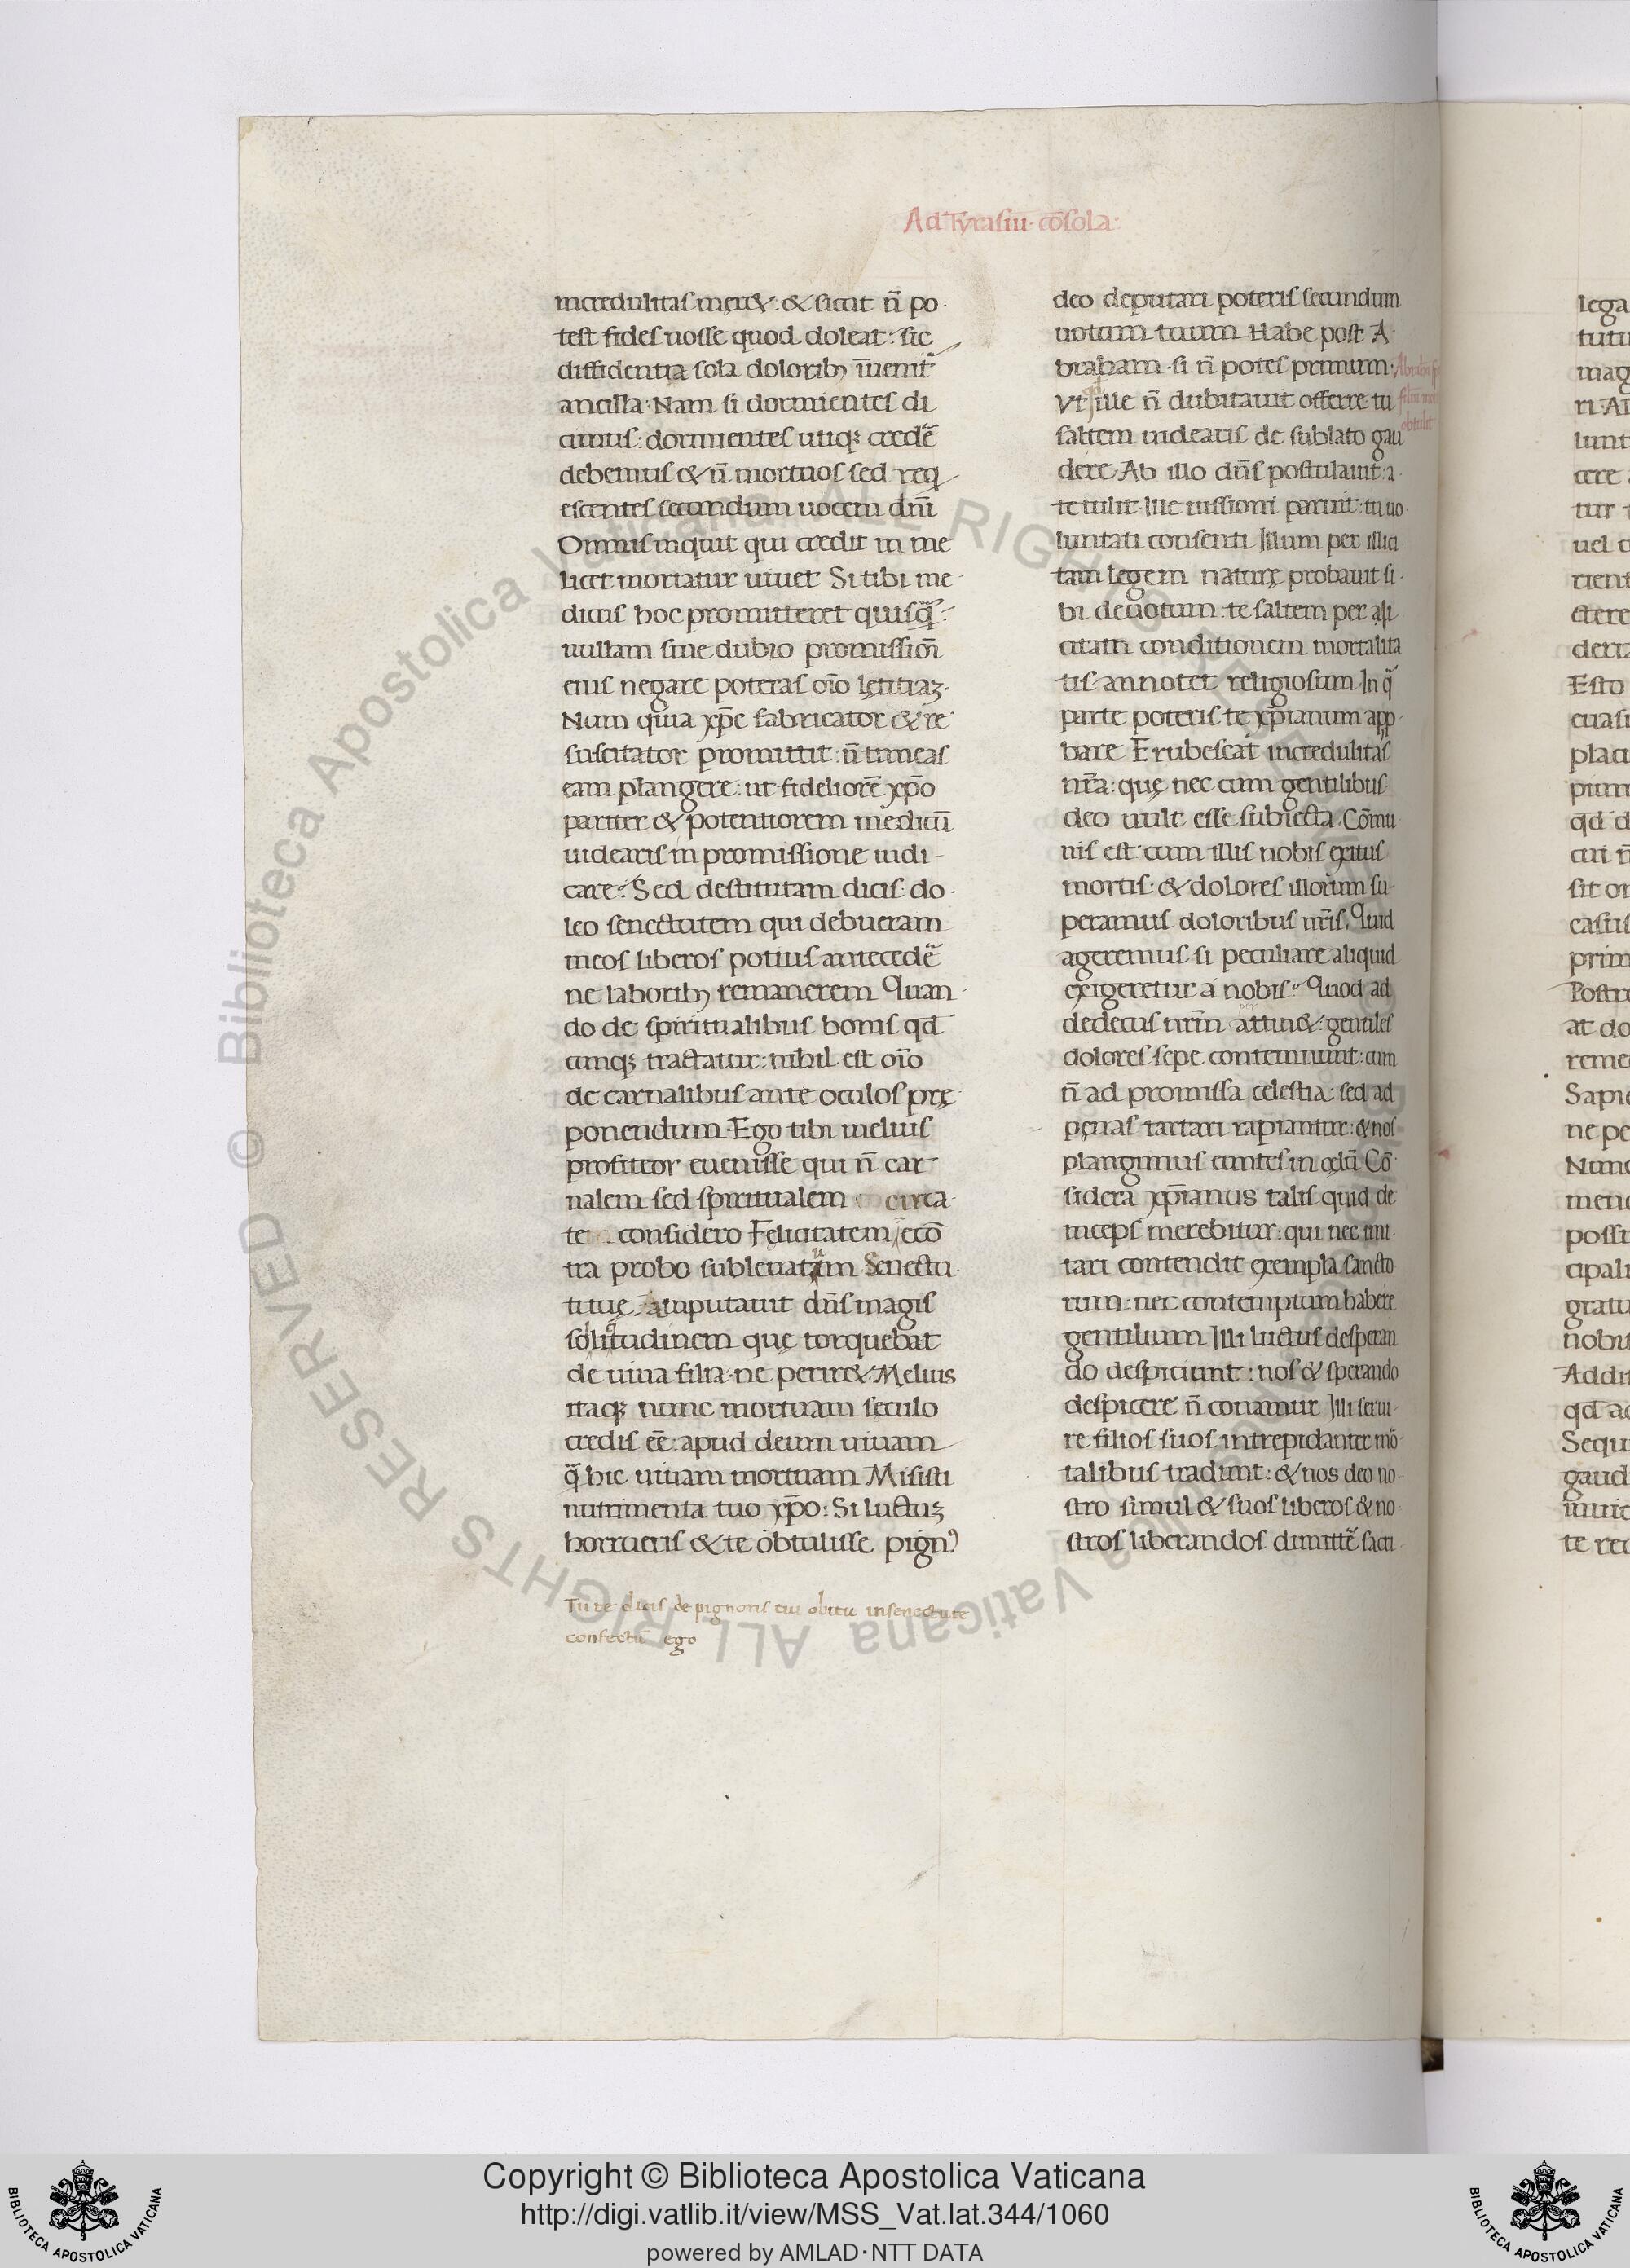 Ad Tyrasiu· cōsola·
incredulitas męret·: & sicut n̄ po·
test fides nosse quod doleat: sic
diffidentia sola dolorib; īuenit̃
ancilla· Nam si dormientes di
cimus: dormientes utiq; credẽ
debemus & n̄ mortuos sed req
escentes secundum uocem dn̄i
Omnis inquit qui credit in me
licet moriatur uiuet Si tibi me·
dicus hoc promitteret quisq̃:
nullam sine dubio promissiōi
eius negare poteras oīo lętitiaʒ·
Num quia xp̄c fabricator & re
suscitator promittit: n̄ timeas
eam plangere: ut fideliorē xp̄o
pariter & potentiorem medicū
uidearis in promissione iudi-
care? Sed destitutam dicis: do·
leo senectutem qui debueram
meos liberos potius antecedẽ
ne laborib; remanerem Quan·
do de spiritualibus bonis qd
cunq; tractatur: nihil est oīo
de carnalibus ante oculos prę·
ponendum· Ego tibi melius
profiteor euenisse qui n̄ car
nalem sed spiritualem circa·
te considero Felicitatem, ecō
tra probo subleuatum Senectu
tituę amputauit dn̄s magis
solitudinem quę torquebat
de uiua filia· ne periret· Melius
itaq; nunc mortuam sęculo
credis eē: apud deum uiuam
q̃ hic uiuam mortuam Misisti
nutrimenta tuo xp̄o: Si luctuʒ
horrueris & te obtulisse pign⁹
Tu te dicis de pignoris tui obitu in senectute
confectū ego
deo deputari poteris secundum
uotum tuum Habe post A·
braham· si n̄ potes primum·
Vt ille n̄ dubitauit offerre tu
saltem uidearis de sublato gau
dere· Ab illo dn̄s postulauit: a·
te tulit· Ille iussioni paruit: tu uo·
luntati consenti Illum per illici
tam legem naturę probauit si·
bi deuotum: te saltem per asi
citatam conditionem mortalita
tis annotet religiosum· In q̃
parte poteris te xp̄ianum app·
bare Erubescat incredulitas
nr̄a: quę nec cum gentilibus
deo uult esse subiecta· Cōmu
nis est cum illis nobis exitus
mortis: & dolores illorum su-
peramus doloribus nr̄is, Quid
ageremus si peculiare aliquid
exigeretur a nobis? Quod ad
dedecus nr̄m attinet: gentiles
dolores sepe contemnunt: cum
n̄ ad promissa celestia: sed ad
pęnas tartari rapiantur: & nos
plangimus euntes in cęlū Cō·
sidera xp̄ianus talis quid de
inceps merebitur: qui nec imi·
tari contendit exempla sancto
rum: nec contemptum habere
gentilium Illi luctus desperan
do despiciunt: nos & sperando
despicere n̄ conamur Illi serui-
re filios suos intrepidanter mō·
talibus tradunt: & nos deo no-
stro simul & suos liberos & no·
stros liberandos dimittẽ sacri·
Copyright © Biblioteca Apostolica Vaticana
http://digi.vatlib.it/view/MSS_Vat.lat.344/1060
powered by AMLAD·NTT DATA
BIBLIOTECA APOSTOLICA VATICANA
BIBLIOTECA APOSTOLICA VATICANA